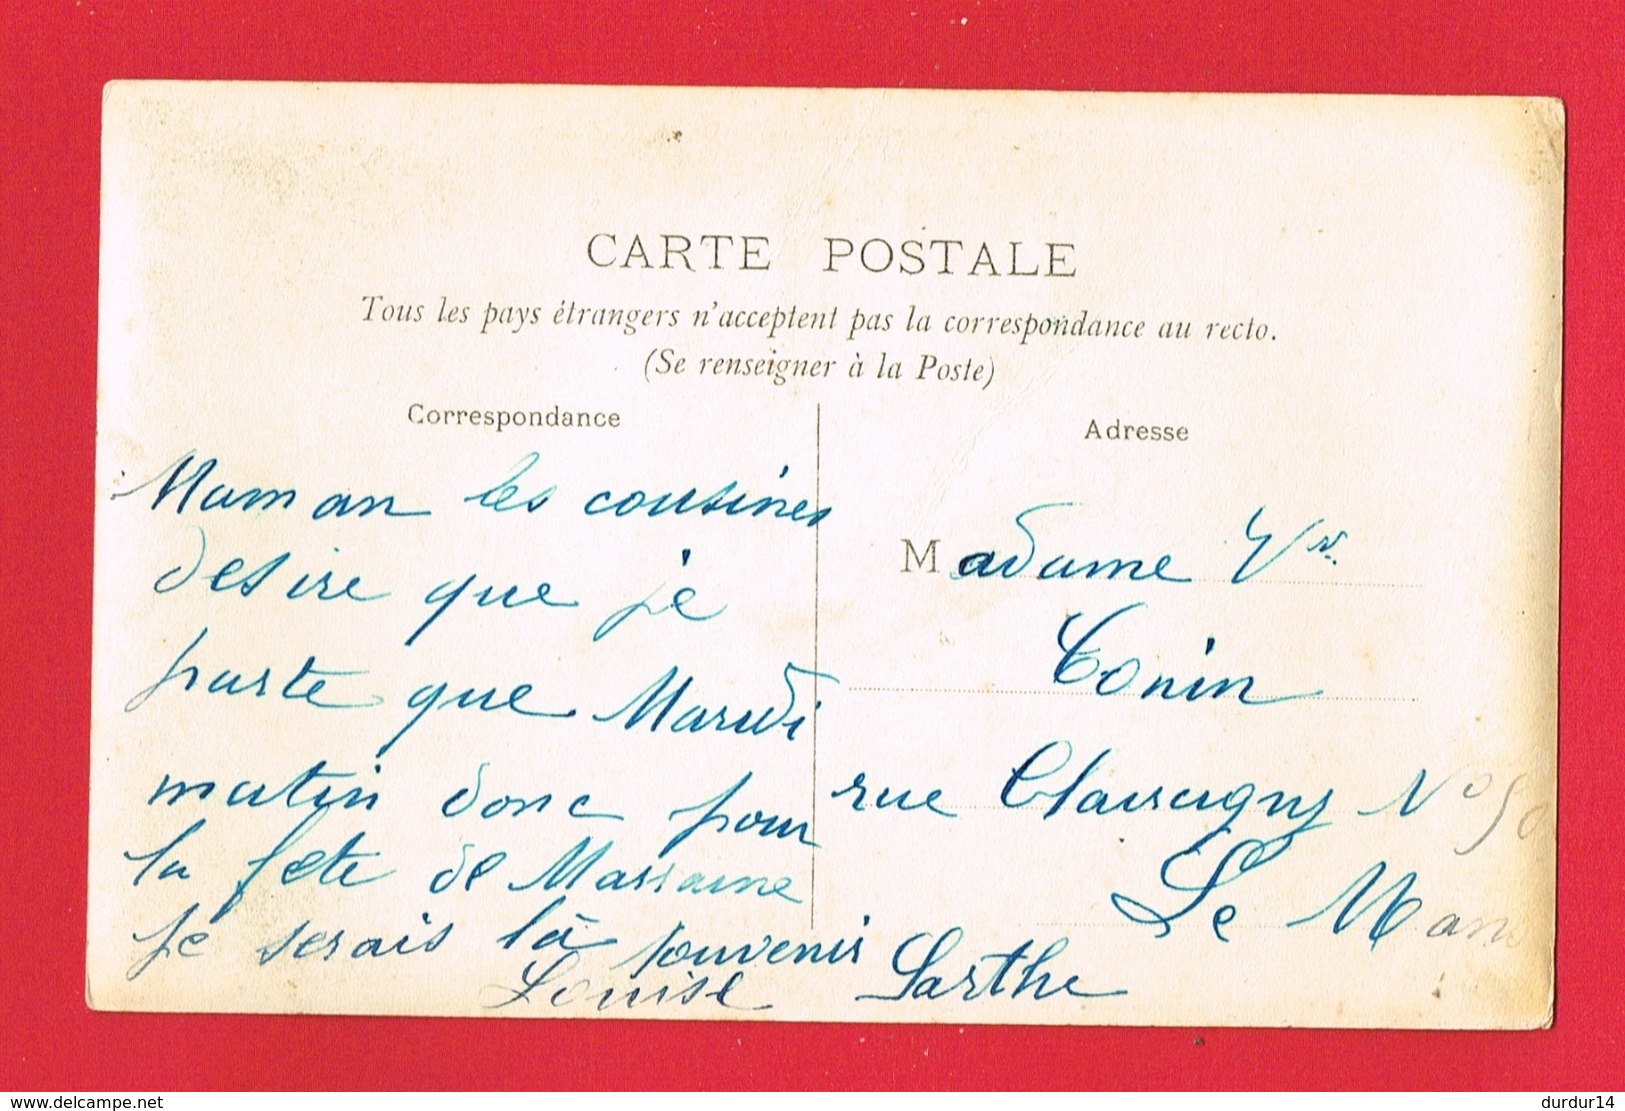 CARTE POSTALE
Tous les pays étrangers n'acceptent pas la correspondance au recto.
(Se renseigner à la Poste)
Correspondance
Maman les cousines
desire que je
parte que Mardi
matin donc pour
la fete de Marraine
je serais là souvenir
Louise
Adresse
Madame Vve
Tonin
rue No 50
Le Mans
Sarthe
delcampe.net
durdur14